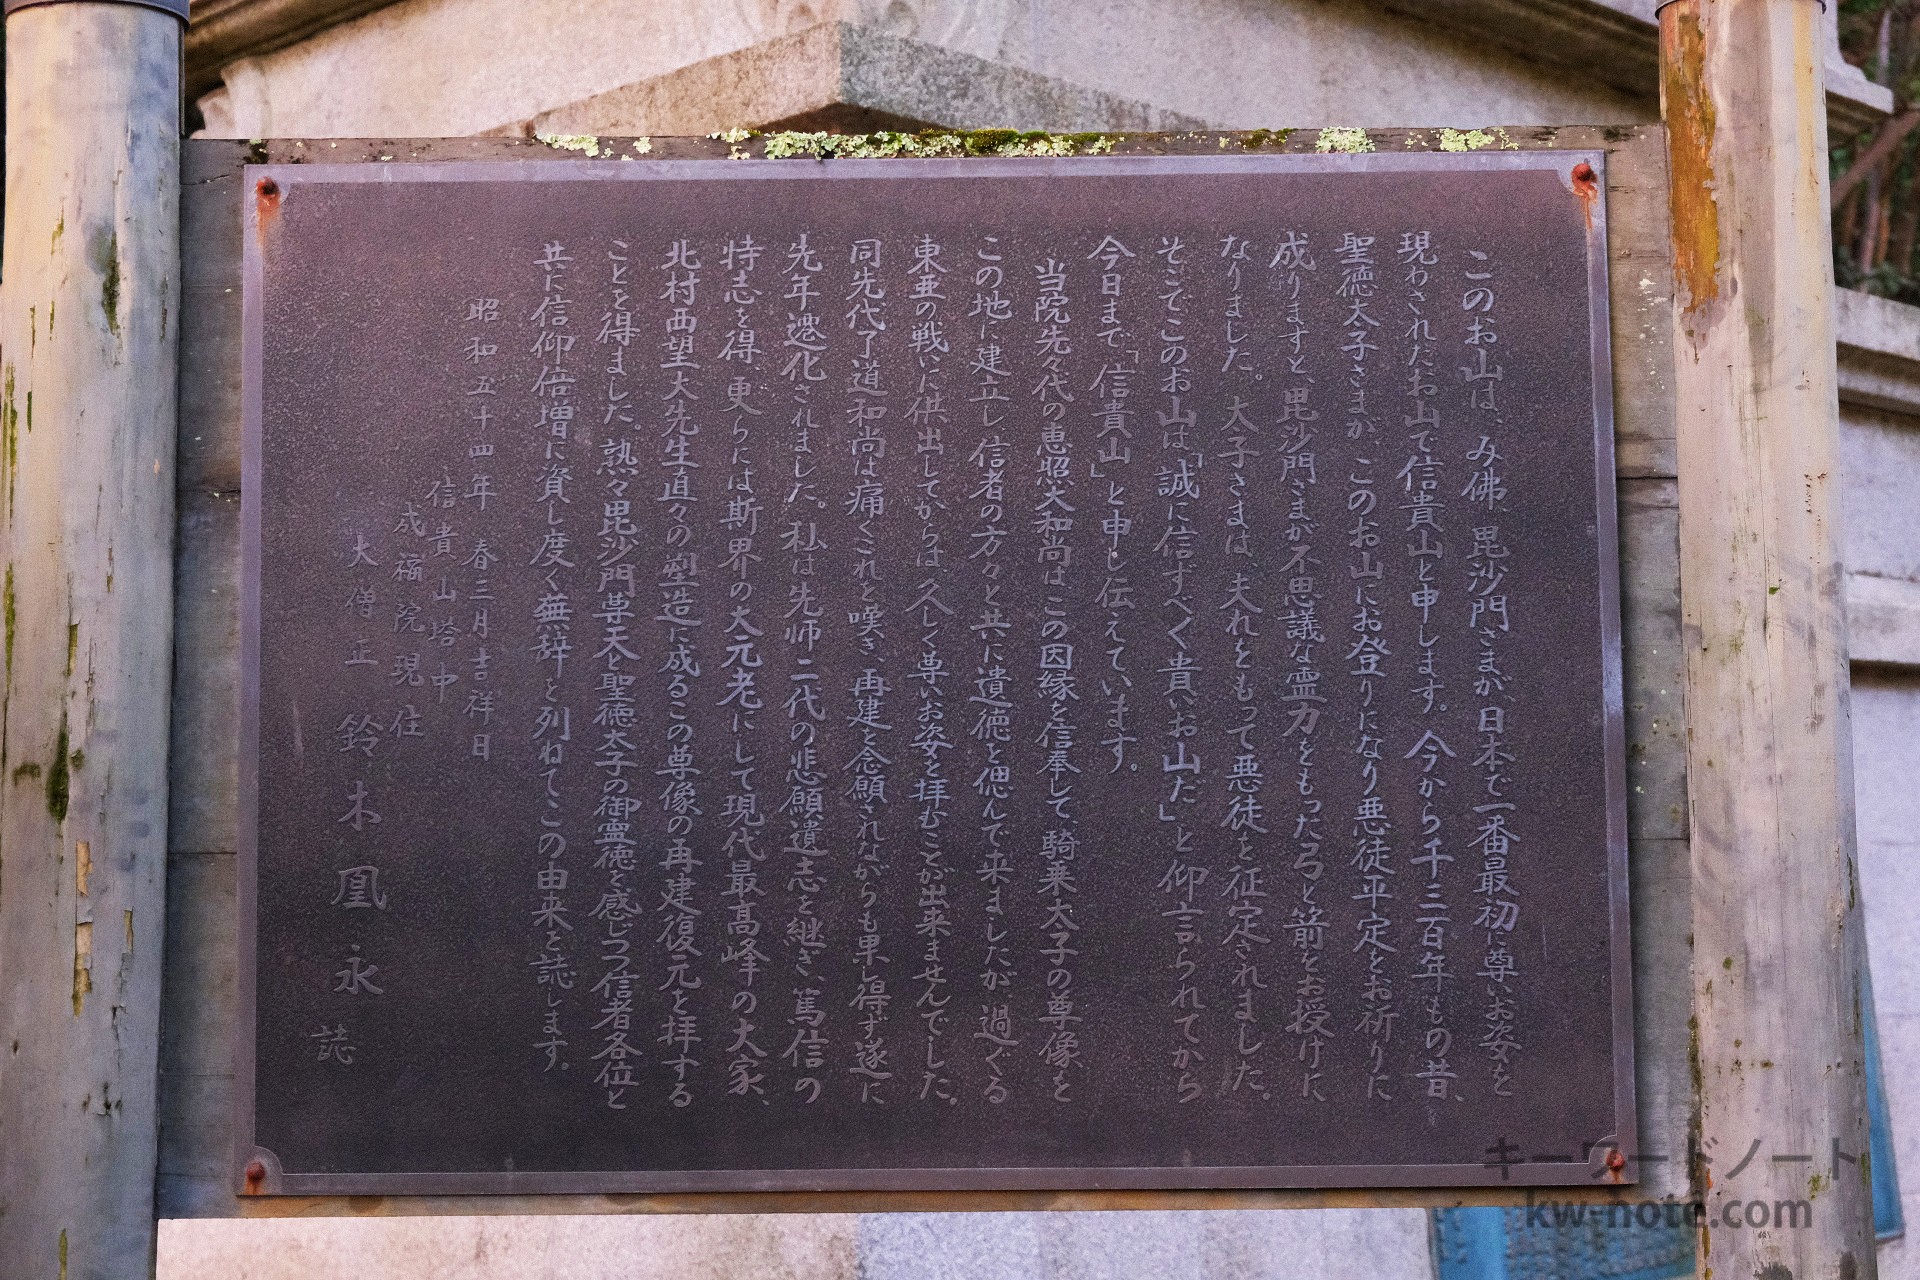 このお山は、み佛、毘沙門さまが、日本で一番最初に尊いお姿を
現わされたお山で信貴山と申します。今から千三百年もの昔、
聖徳太子さまが、このお山にお登りになり悪徒平定をお祈りに
成りますと、毘沙門さまが不思議な霊力をもった弓と箭をお授けに
なりました。太子さまは、夫れをもって悪徒を征定されました。
そこでこのお山は「誠に信ずべく貴いお山だ」と仰言られてから
今日まで「信貴山」と申し伝えています。
当院先々代の恵照大和尚はこの因縁を信奉して、騎乗太子の尊像を
この地に建立し信者の方々と共に遺徳を偲んで来ましたが、過ぐる
東亜の戦いに供出してからは久しく尊いお姿を拝むことが出来ませんでした。
同先代了道和尚は痛くこれを嘆き、再建を念願されながらも果し得ず遂に
先年遷化されました。私は先師二代の悲願遺志を継ぎ、篤信の
特志を得、更らには斯界の大元老にして現代最高峰の大家、
北村西望大先生直々の塑造に成るこの尊像の再建復元を拝する
ことを得ました。熟々毘沙門尊天と聖徳太子の御霊徳を感じつつ信者各位と
共に信仰倍増に資し度く蕪辞を列ねてこの由来を誌します。
昭和五十四年 春三月吉祥日
信貴山塔中
成福院現住
大僧正 鈴木凰永
誌
キーワードノート
kw-note.com